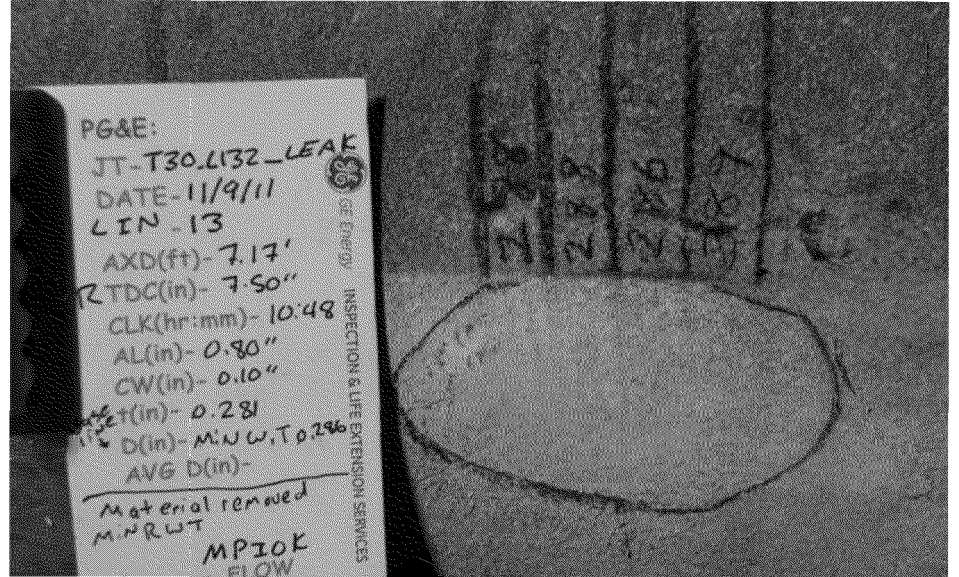 PG&E:
JT-T30_L132_LEAK
DATE-11/9/11
LIN-13
AXD(ft)-7.17'
TDC(in)-7.50"
CLK(hr:mm)-10:48
AL(in)-0.80"
CW(in)-0.10"
t(in)-0.281
D(in)-MiN W.T 0.286
AVG D(in)-
Material removed
MiN RWT
MPIOK
FLOW
GE Energy INSPECTION & LIFE EXTENSION SERVICES
288
286
287